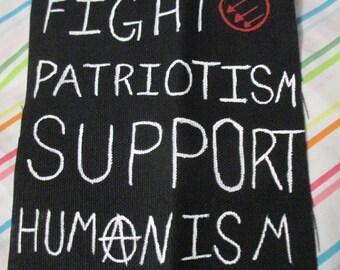 FIGHT
PATRIOTISM
SUPPORT
HUMANISM